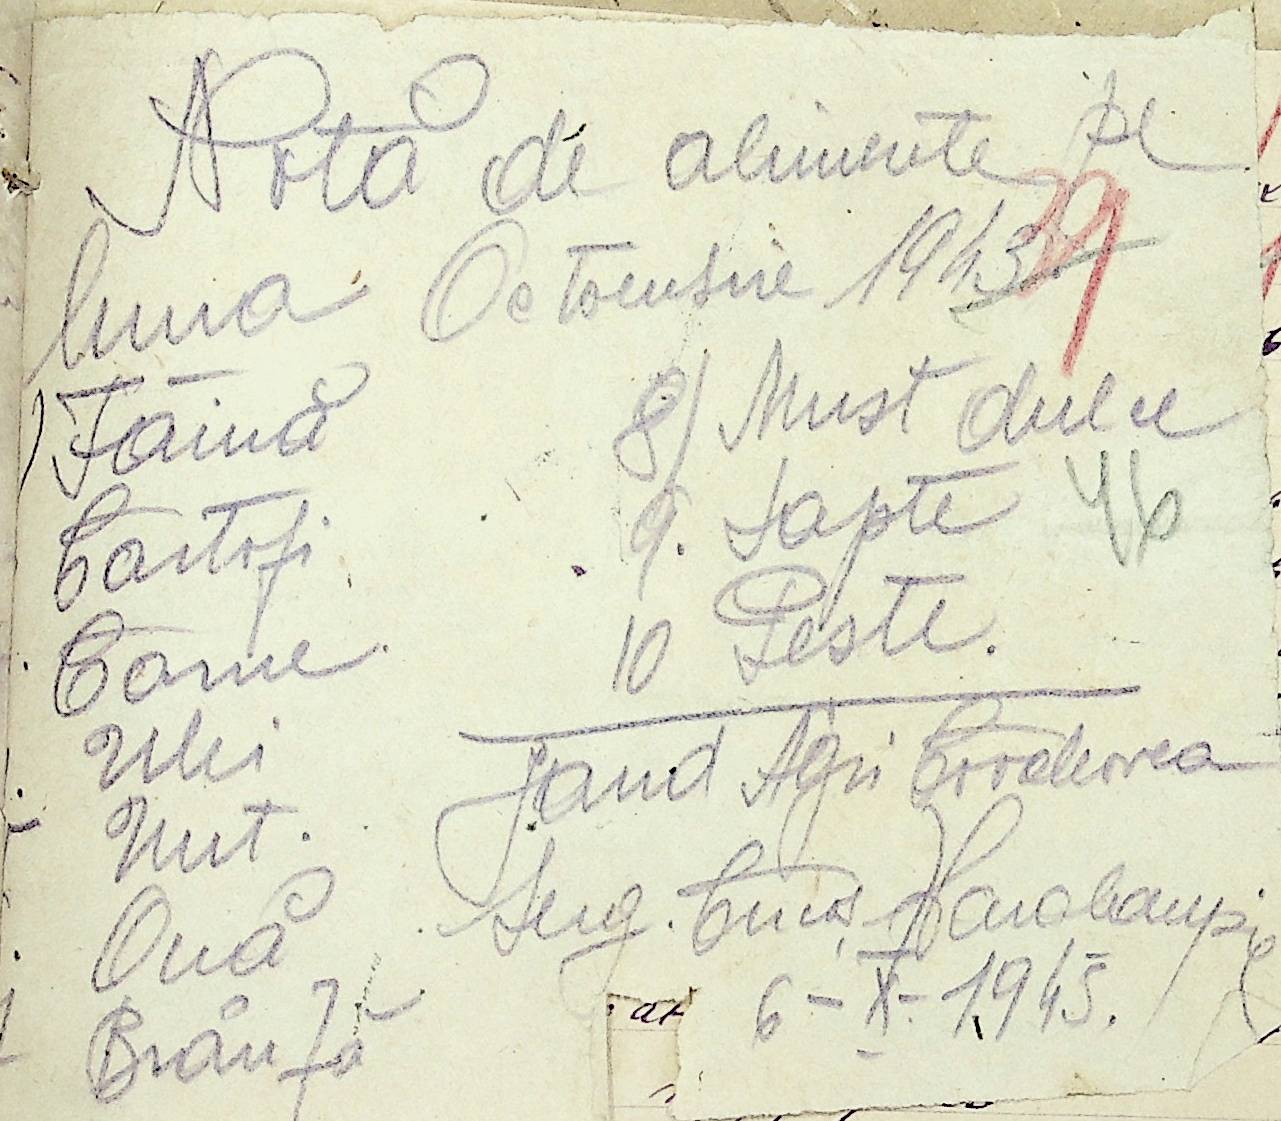 Notă de alimente pe
luna Octombrie 1945
39
Făină
Cartofi
Carne
Ulei
Unt.
Ouă
Brânză
8) Must dulce
9. Lapte
10 Peste.
46
Jand Agri Codorea
Serg. Haralampie
6-X-1945.